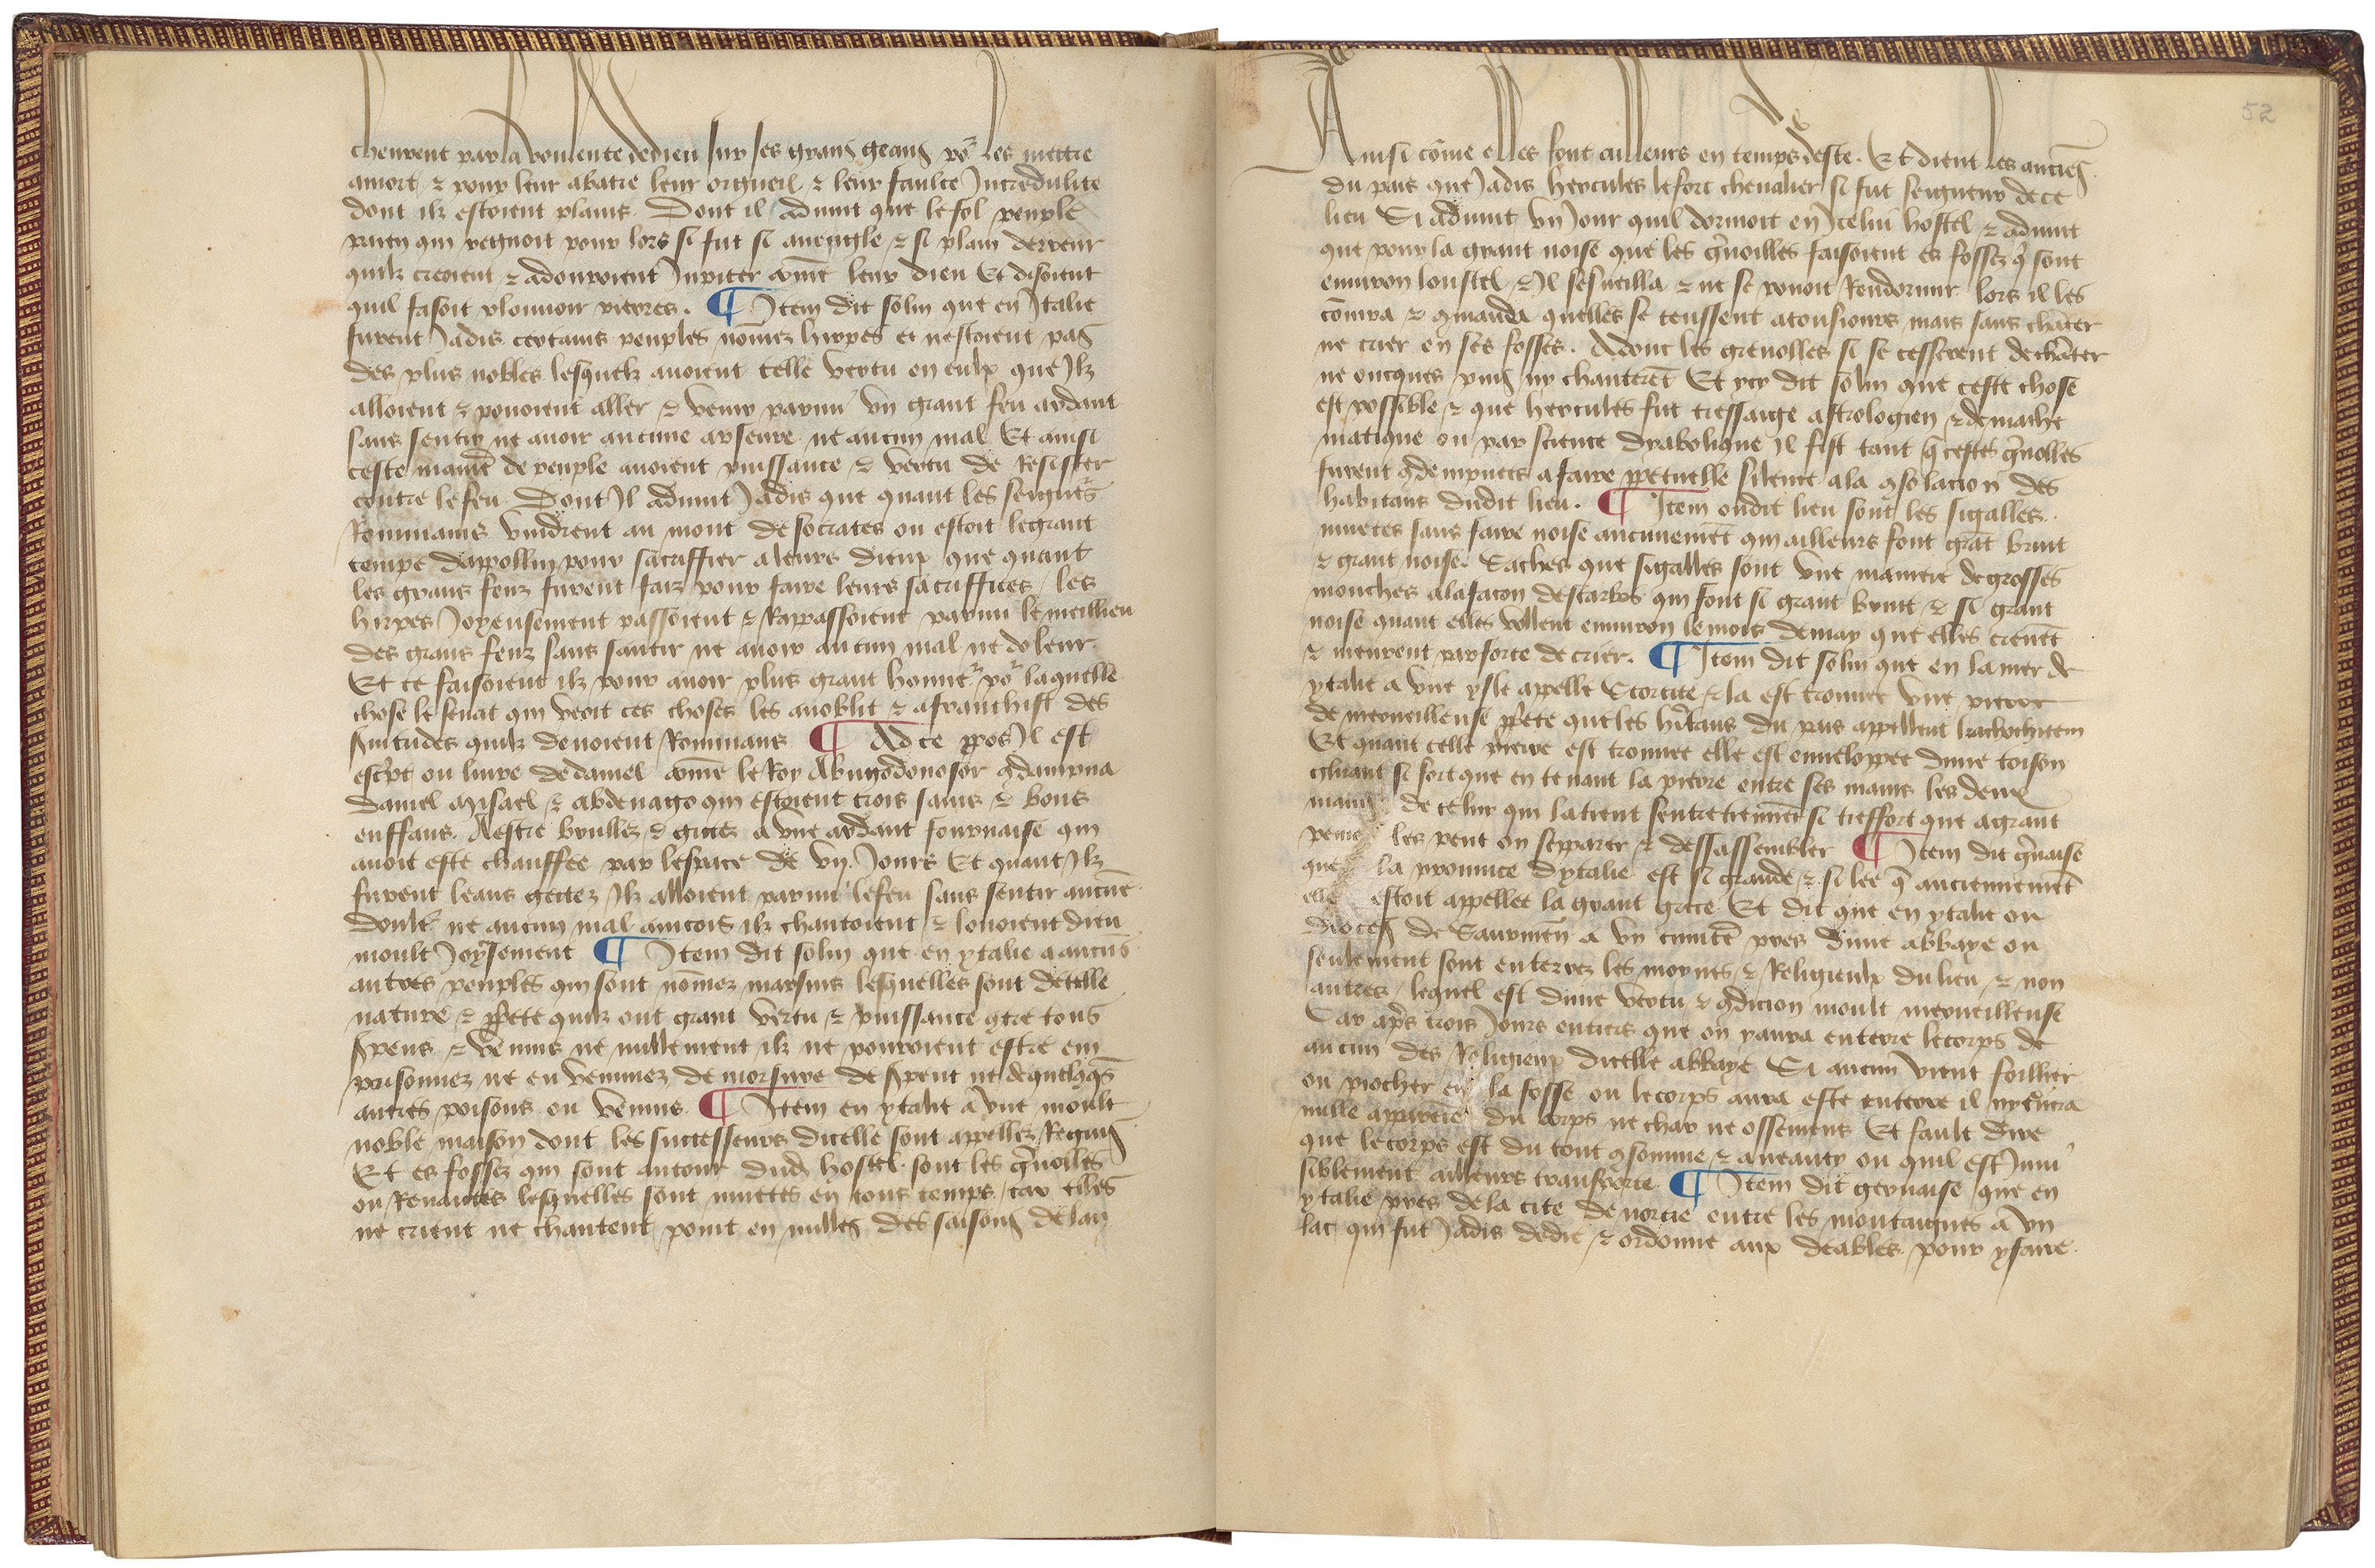 cheurent par la voulente de dieu sur ses grans geans po~ les mettre
amort / & pour leur abatre leur orgueil & leur faulce Incredulite
dont ilz estoient plains. Dont il advint que le fol peuple
paien qui regnoit pour lors si fut si aveugle & si plain derreur
quilz creoient & adouroient Jupiter com̄e leur dieu Et disoient
quil fasoit plouvoir pierres. ¶ Item dit solin que en Italie
furent Jadis certains peuples nōmez hirpes et nestoient pas
des plus nobles lesquelz avoient telle vertu en eulx que Ilz
alloient & povoient aller & venir parmi un grant feu ardant
sans sentir ne avoir aucune arseure ne aucun mal Et ainsi
ceste manie~ de peuple avoient puissance & vertu de Resister
contre le feu. Dont Il advint Jadis que quant les seigne~s
Rommains vindrent au mont de socrates ou estoit le grant
temple dappollin pour sacriffier a leurs dieux que quant
les grans feuz furent faiz pour faire leurs sacriffices / les
hirpes Joyeusement passoient & Rappassoient parmi le meillieu
des grans feuz sans santir ne avoir aucun mal ne doleur.
Et ce faisoient ilz pour avoir plus grant honne~ po~ laquelle
chose le senat qui veoit ces choses les anoblit & afranchist des
svitudes quilz devoient Rommains ¶ Ad ce ppos Il est
escrpt ou livre de daniel com̄e le Roy Abugodonosor 9dampna
daniel Misael & abdenago qui estoient trois sains & bons
enffans. Aestre brullez & gictez a une ardant fournaise qui
avoit este chauffee par lespace de vij. Jours Et quant Ilz
furent leans gectez Ilz alloient parmi le feu sans sentir aucūe
doule~ ne aucun mal aincois ilz chantoient & louoient dieu
moult Joy~sement ¶ Item dit solin que en ytalie a aucūs
autres peuples qui sont nōmez marsius lesquelles sont de telle
nature & pp~ete quilz ont grant vertu & puissance 9tre tous
spens & venins ne nullement ilz ne pourroient estre em
prisonnez ne en venimez de morsure de spent ne de quelqs
autres poisons ou venins. ¶ Item en ytalie a une moult
noble maison dont les successeurs dicelle sont appellez Reguis
Et es fossez qui sont autour dud hostel sont les g~noilles
ou Renantes lesquelles sont muetes en tous temps / car elles
ne crient ne chantent point en nulles des saisons de lan
Ainsi cōme elles font ailleurs en temps deste. Et dient les anciēs
du pais que Jadis hercules le fort chevalier si fut seigneur de ce
lieu Si advint un Jour quil dormoit en Icelui hostel & advint
que pour la grant noise que les g~noilles faisoient es fossez q~ sont
environ loustel / Il sesveilla & ne se povoit Rendormir lors il les
cōiura & 9manda quelles se teussent atousiours mais sans chāter
ne crier en ses fosses. Adonc les grenolles si se cesserent de chāter
ne oncques puis ny chanterēt Et ycy dit solin que ceste chose
est possible & que hercules fut tressaige astrologien & de mathe
matique ou par science dyabolique il fist tant q~ cestes g~nolles
furent 9dempnees a faire ppetuelle silence a la 9solacion des
habitans dudit lieu. ¶ Item oudit lieu sont les sigalles
muetes sans faire noise aucunemēt qui ailleurs font grāt bruit
& grant noise. Saches que sigalles sont une maniere de grosses
mouches ala facon descarbos qui font si grant bruit & si grant
noise quant elles vollent environ le mois de may que elles crevēt
& meurent par force de crier. ¶ Item dit solin que en la mer de
ytalie a une ysle appelle Scorcite & la est trouvee une pierre
de merveilleuse pp~ete que les hi~tans du pais appellent
Et quant celle pierre est trouvee elle est enveloppee dune toison
gluant si fort que en tenant la pierre entre ses mains les deux
mains de celuy qui la tient sentretiennēt si tresfort que a grant
peine les peut on sepparer & dessassembler ¶ Item dit g~vaise
que la province dytalie est si grande & si lee q~ anciennemēt
elle estoit appellee la grant grece Et dit que en ytalie ou
dioces de a un cimite~ pres dune abbaye ou
seulement sont enterrez les moynes & Religieulx du lieu & non
autres / lequel est dune vertu & 9dicion moult merveilleuse
Car ap~s trois Jours entiers que on y aura enterre le corps de
aucun des Religieux dicelle abbaye Si aucun vient foillier
ou piocher en la fosse ou le corps aura este enterre il ny
nulle du corps ne char ne ossemens Et fault dire
que le corps est du tout 9somme & aneanty ou quil est Invi
siblement ailleurs transporte. ¶ Item dit gervaise que en
ytalie pres de la cite de norcie entre les montaignes a un
lac qui fut Jadis dedie & ordonne aux deables pour y faire
52